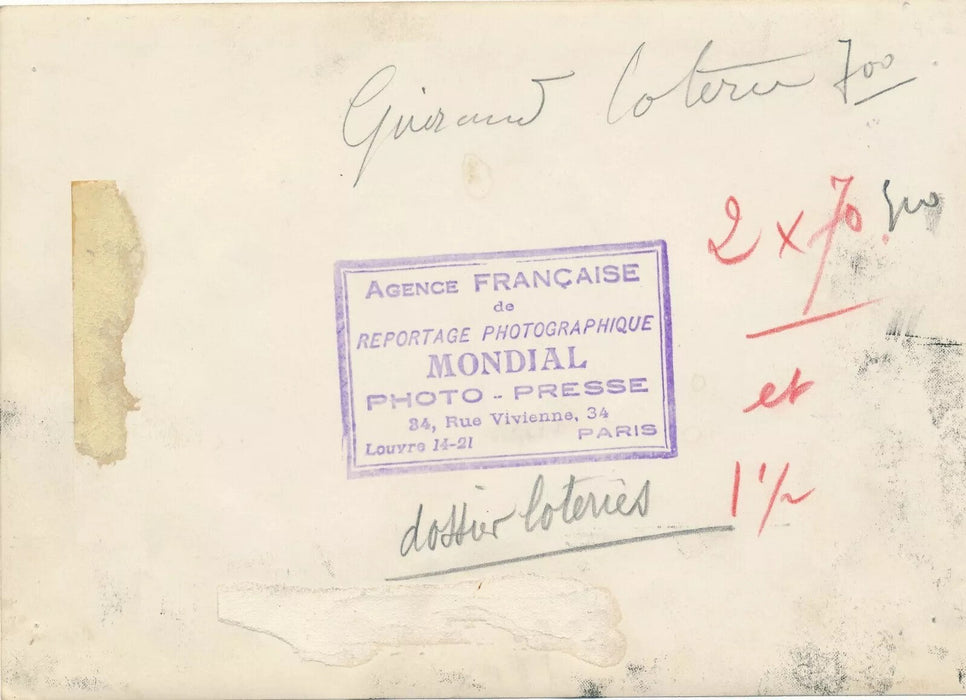 loterie 700
2 x 70.
AGENCE FRANÇAISE
de
REPORTAGE PHOTOGRAPHIQUE
MONDIAL
PHOTO - PRESSE
34, Rue Vivienne, 34
Louvre 14-21 PARIS
et
1 1/2
dossier loteries